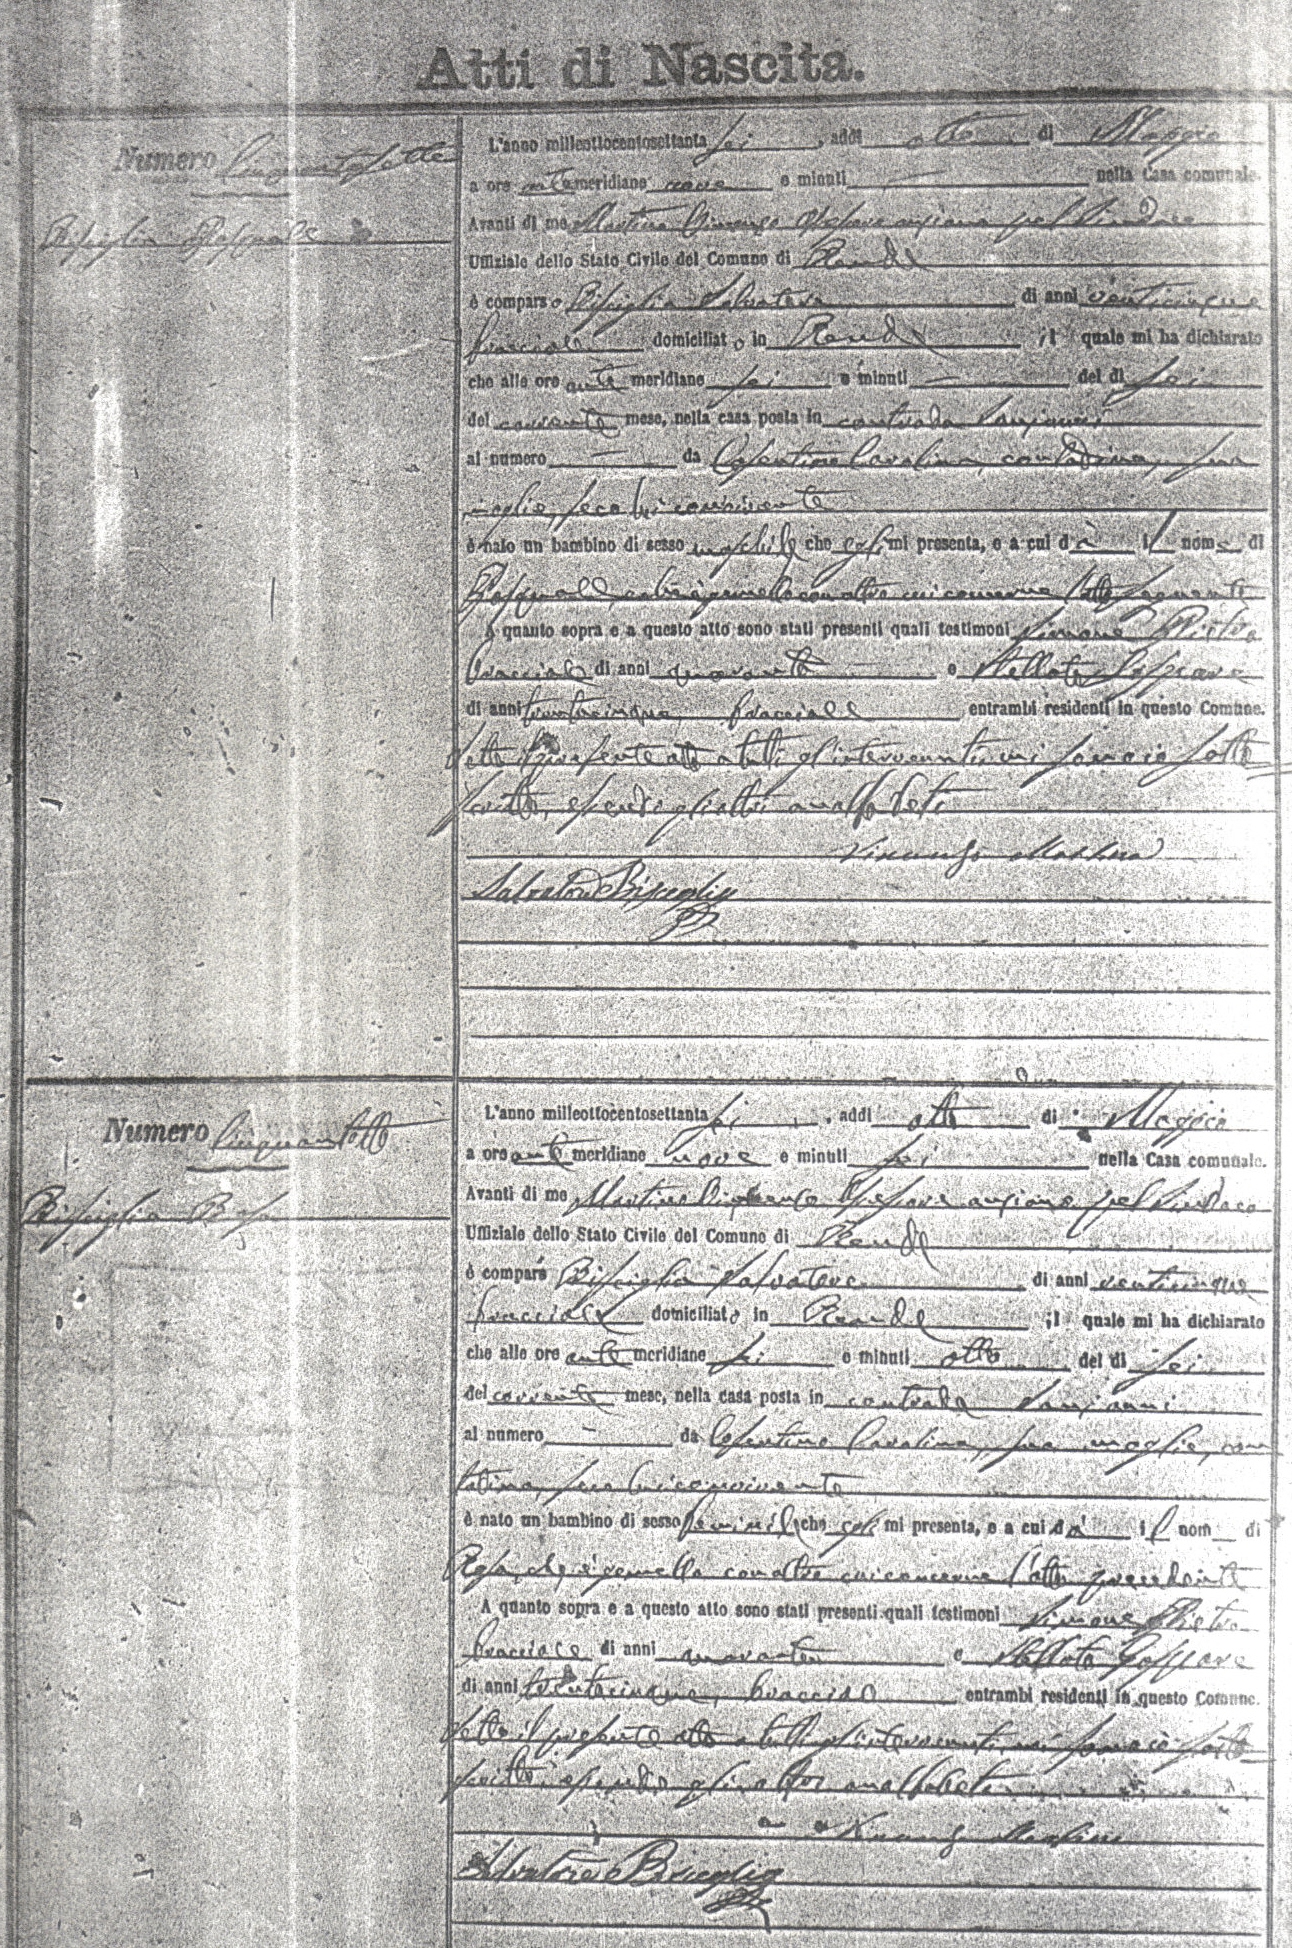 Atti di Nascita.
Numero Cinquantasette
Bisciglia Pasquale
L'anno milleottocentosettanta sei, addì otto di Maggio
a ore antemeridiane nove e minuti — nella Casa comunale.
Avanti di me Martino Vincenzo Assessore anziano pel Sindaco
Uffiziale dello Stato Civile del Comune di Rende
è comparso Bisciglia Salvatore di anni venticinque
bracciale domiciliato in Rende ;il quale mi ha dichiarato
che alle ore antemeridiane sei e minuti — del dì sei
del corrente mese, nella casa posta in contrada
al numero — da Cosentino Carolina, contadina, sua
moglie, seco lui convivente
è nato un bambino di sesso maschile che egli mi presenta, e a cui dà il nome di
Pasquale, che è gemello con altro cui concerne l'atto seguente
A quanto sopra e a questo atto sono stati presenti quali testimoni Simone Pietro
bracciale di anni quaranta e Stellato Gaspare
di anni trentacinque, bracciale entrambi residenti in questo Comune.
Letto il presente atto a tutti gl'intervenuti, mi sono sotto
scritto, essendo gli altri analfabeti
Vincenzo Martino
Salvatore Bisceglia
Numero Cinquantotto
Bisciglia Rosa
L'anno milleottocentosettanta sei, addì otto di Maggio
a ore antemeridiane nove e minuti sei nella Casa comunale.
Avanti di me Martino Vincenzo Assessore anziano pel Sindaco
Uffiziale dello Stato Civile del Comune di Rende
è comparso Bisciglia Salvatore di anni venticinque
bracciale domiciliato in Rende ;il quale mi ha dichiarato
che alle ore antemeridiane sei e minuti otto del dì sei
del corrente mese, nella casa posta in contrada
al numero — da Cosentino Carolina, sua moglie, con
tadina, seco lui convivente
è nato un bambino di sesso feminile che egli mi presenta, e a cui dà il nom di
Rosa, che è gemella con altro cui concerne l'atto precedente
A quanto sopra e a questo atto sono stati presenti quali testimoni Simone Pietro
bracciale di anni quaranta e Stellato Gaspare
di anni trentacinque, bracciale entrambi residenti in questo Comune.
Letto il presente atto a tutti gl'intervenuti, mi sono sotto
scritto, essendo gli altri analfabeti
Vincenzo Martino
Salvatore Bisceglia